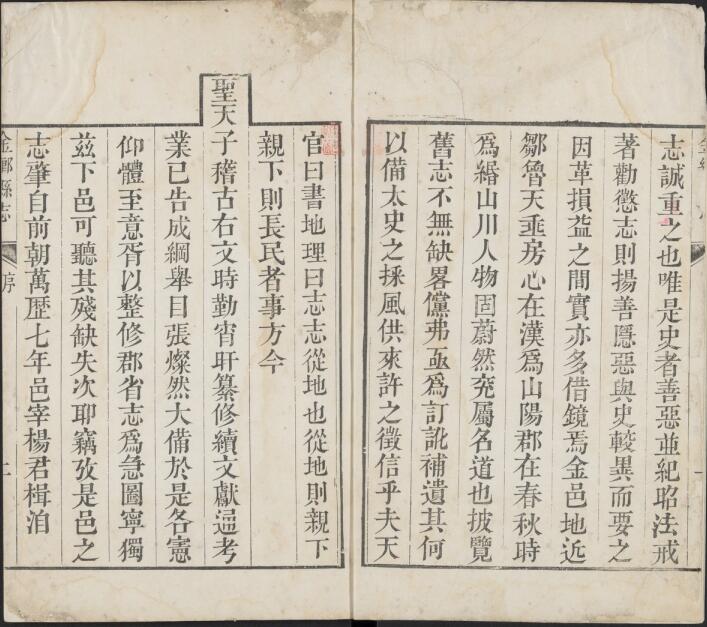 志誠重之也唯是史者善惡並紀昭法戒
著勸懲志則揚善隱惡與史較異而要之
因革損益之間實亦多借鏡焉金邑地近
鄒魯天垂房心在漢爲山陽郡在春秋時
爲緡山川人物固蔚然兖屬名道也披覽
舊志不無缺畧儻弗亟爲訂訛補遺其何
以備太史之採風供來許之徵信乎夫天
官曰書地理曰志志從地也從地則親下
親下則長民者事方今
聖天子稽古右文時勤宵旰纂修續文獻通考
業已告成綱舉目張燦然大備於是各憲
仰體至意胥以整修郡省志爲急圖寧獨
茲下邑可聽其殘缺失次聊竊攷是邑之
志肇自前朝萬歷七年邑宰楊君楫洎
金鄉縣志
序
二